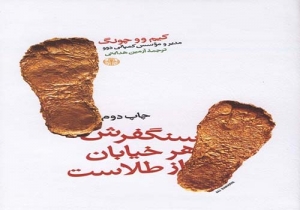 کیم وو چونگ
مدیر و مؤسس کمپانی دوو
ترجمهٔ آرمین هدائتی
چاپ دوم
سنگفرش
هر خیابان
از طلاست